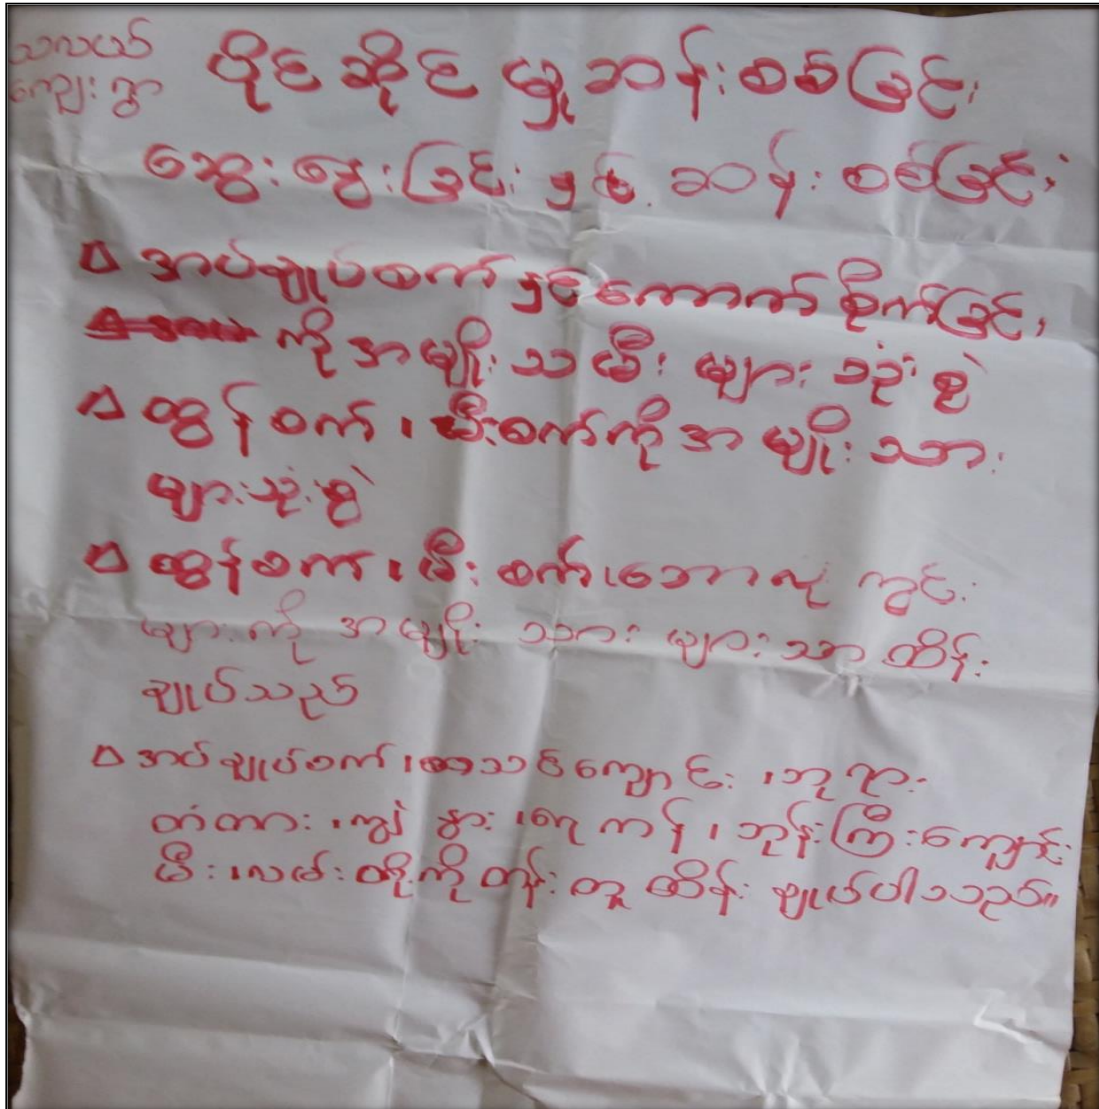 သလယ်
ကျေးရွာ
ပိုင်ဆိုင်မှုဆန်းစစ်ခြင်း
ဆွေးနွေးခြင်းနှင့် ဆန်းစစ်ခြင်း
∆ အပ်ချုပ်စက်နှင့်ကောက်စိုက်ခြင်း
ကိုအမျိုးသမီးများသုံးစွဲ
∆ ထွန်စက်၊ မီးစက်ကိုအမျိုးသား
များသုံးစွဲ
∆ ထွန်စက်၊ မီးစက်၊ဘောလုံကွင်း
များကိုအမျိုးသားများသာထိန်း
ချုပ်သည်
∆ အပ်ချုပ်စက်၊စာသင်ကျောင်း၊ဘုရား
တံတား၊ကျွဲနွား၊ရေကန်၊ဘုန်းကြီးကျောင်း
မီး၊လမ်းတို့ကိုတန်းတူထိန်းချုပ်ပါသည်။